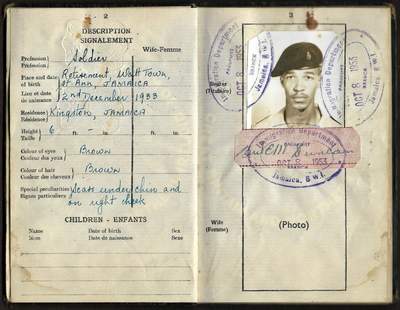 2
DESCRIPTION
SIGNALEMENT
Wife-Femme
Profession
Profession
Soldier
Place and date
of birth
Retirement, Watt Town,
St Ann, JAMAICA
Lieu et date
de naissance
2nd December 1933
Residence
Résidence
Kingston, JAMAICA
Height
Taille
6 ft. - in. ft. in.
Colour of eyes
Couleur des yeux
Brown
Colour of hair
Couleur des cheveux
Brown
Special peculiarities
Signes particuliers
Scars under chin and
on right cheek
CHILDREN - ENFANTS
Name Date of birth Sex
Nom Date de naissance Sexe
3
Bearer
(Titulaire)
Immigration Department
PASSPORT
BRANCH
Jamaica, B W I.
OCT 8 1953
Immigration Department
OCT 8 1953
Jamaica, B W I.
Wife
(Femme)
(Photo)